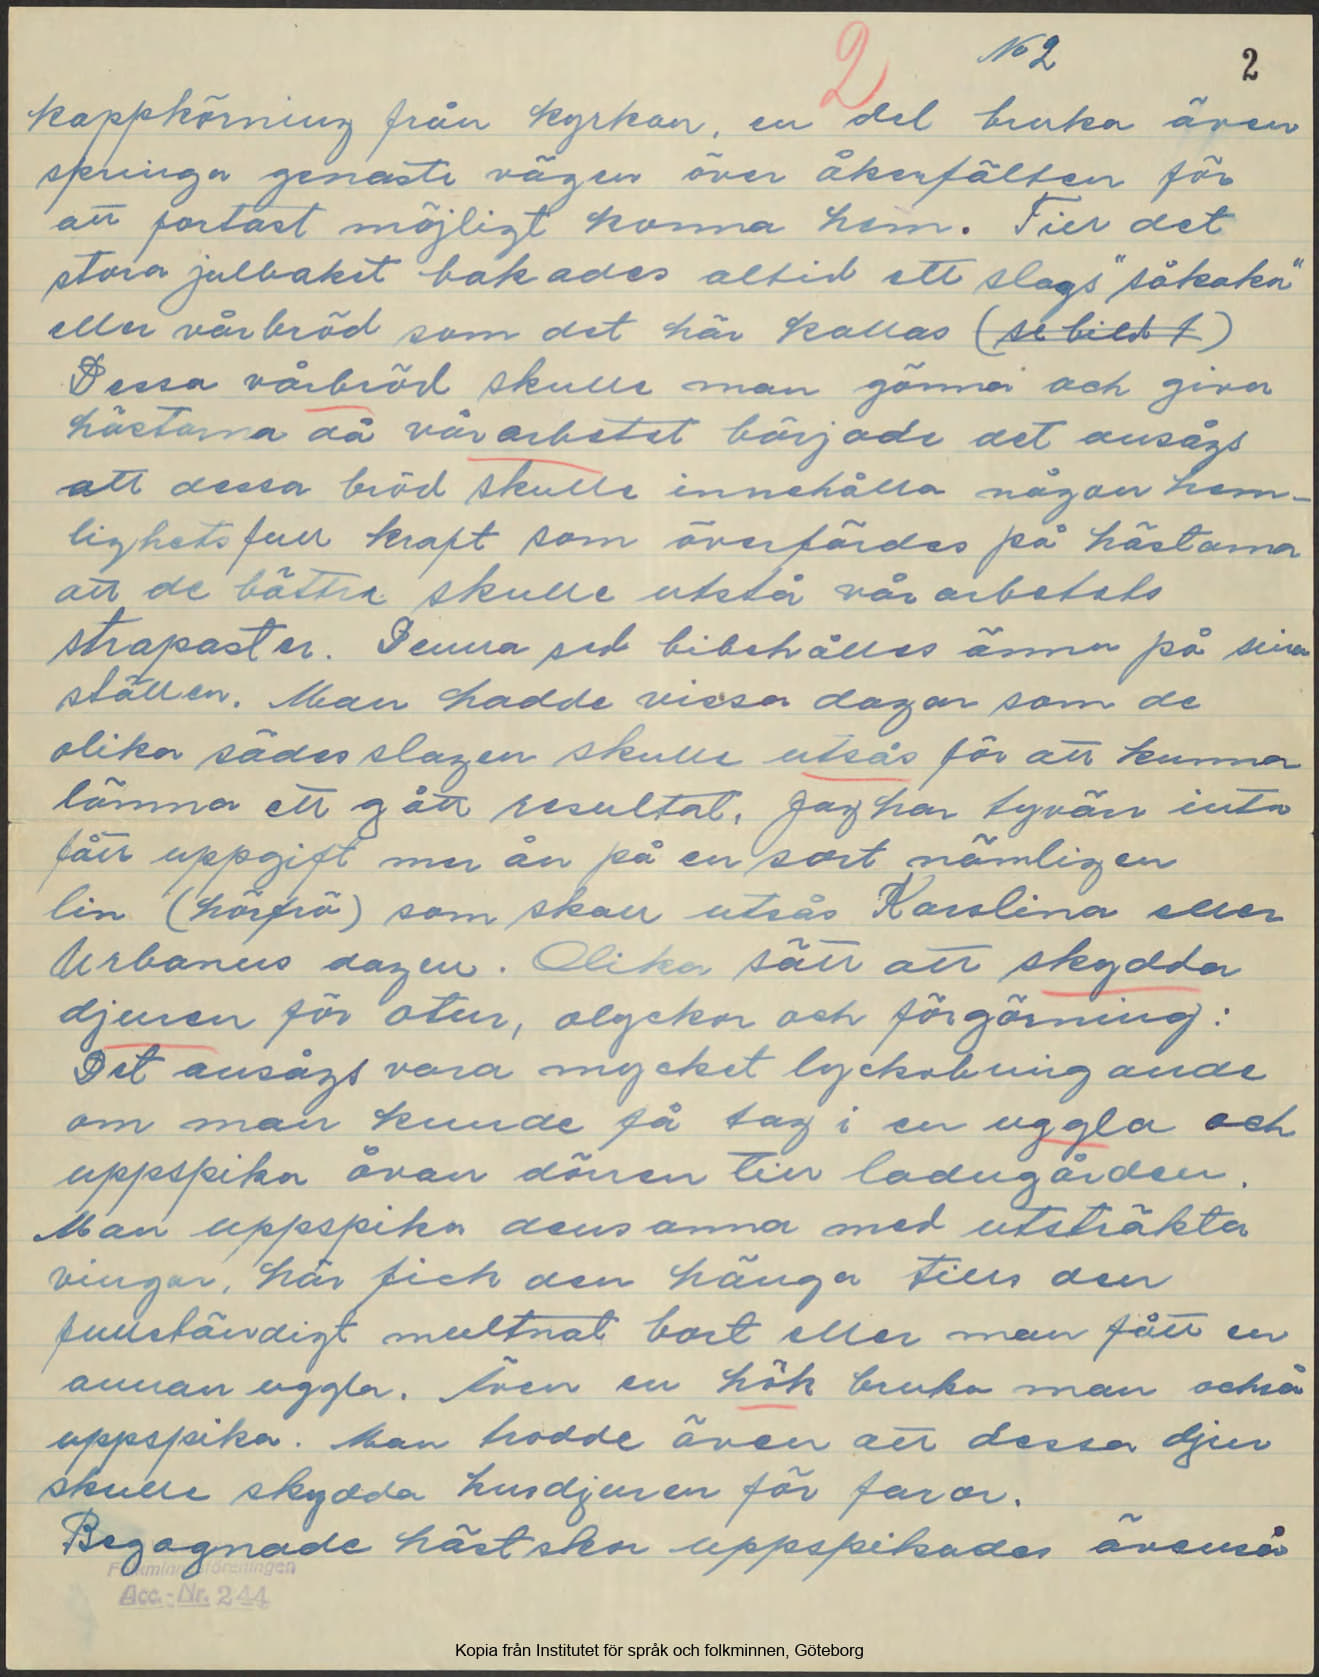 2 No 2 2
kappkörning från kyrkan, en del bruka även
springa genaste vägen över åkerfälten för
att fortast möjligt komma hem. Till det
stora julbaket bakades altid ett slags "såkaka"
eller vårbröd som det här kallas (se bild 1)
Dessa vårbröd skulle man gömma och giva
hästarna då vårarbetet började det ansågs
att dessa bröd skulle innehålla någon hem-
lighetsfull kraft som överfördes på hästarna
att de bättre skulle utstå vårarbetets
strapaster. Denna sed bibehålles ännu på sina
ställen. Man hadde vissa dagar som de
olika sädesslagen skulle utsås för att kunna
lämna ett gått resultat. Jag har tyvär inta
fått uppgift mer än på en sort nämligen
lin (hörfrö) som skall utsås Karolina eller
Urbanus dagen. Olika sätt att skydda
djuren för otur, olyckor och förgörning:
Det ansågs vara mycket lyckobringande
om man kunde få tag i en uggla och
uppspika åvan dörren till ladugården.
Man uppspika densamma med utsträkta
vingar, här fick den hänga tills den
fullständigt multnat bort eller man fått en
annan uggla. Även en hök bruka man också
uppspika. Man trodde även att dessa djur
skulle skydda husdjuren för faror.
Begagnade hästskor uppspikades ävenså
Folkminnesföreningen
Acc.-Nr. 244
Kopia från Institutet för språk och folkminnen, Göteborg